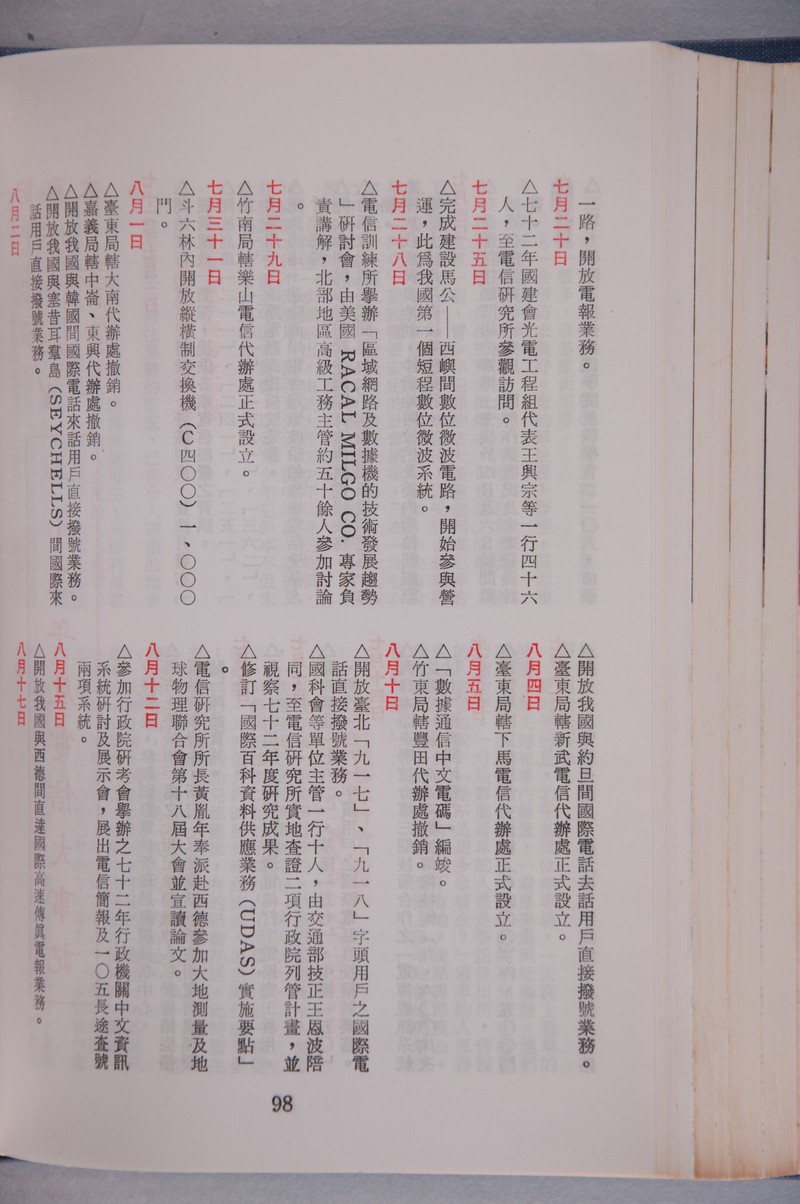 一路，開放電報業務。
七月二十日
△七十二年國建會光電工程組代表王興宗等一行四十六
人，至電信研究所參觀訪問。
七月二十五日
△完成建設馬公——西嶼間數位微波電路，開始參與營
運，此爲我國第一個短程數位微波系統。
七月二十八日
△電信訓練所舉辦「區域網路及數據機的技術發展趨勢
」研討會，由美國 RACAL MILGO CO. 專家負
責講解，北部地區高級工務主管約五十餘人參加討論
。
七月二十九日
△竹南局轄樂山電信代辦處正式設立。
七月三十一日
△斗六林內開放縱橫制交換機（C四〇〇）一、〇〇〇
門。
八月一日
△臺東局轄大南代辦處撤銷。
△嘉義局轄中崙、東興代辦處撤銷。
△開放我國與韓國間國際電話來話用戶直接撥號業務。
△開放我國與塞昔耳羣島（SEYCHELLS）間國際來
話用戶直接撥號業務。
八月二日
△開放我國與約旦間國際電話去話用戶直接撥號業務。
△臺東局轄新武電信代辦處正式設立。
八月四日
△臺東局轄下馬電信代辦處正式設立。
八月五日
△「數據通信中文電碼」編竣。
△竹東局轄豐田代辦處撤銷。
八月十日
△開放臺北「九一七」、「九一八」字頭用戶之國際電
話直接撥號業務。
△國科會等單位主管一行十人，由交通部技正王恩波陪
同，至電信研究所實地查證二項行政院列管計畫，並
視察七十二年度研究成果。
△修訂「國際百科資料供應業務（UDAS）實施要點」
。
△電信研究所所長黃胤年奉派赴西德參加大地測量及地
球物理聯合會第十八屆大會並宣讀論文。
八月十二日
△參加行政院研考會舉辦之七十二年行政機關中文資訊
系統研討及展示會，展出電信簡報及一〇五長途查號
兩項系統。
八月十五日
△開放我國與西德間直達國際高速傳眞電報業務。
八月十七日
98